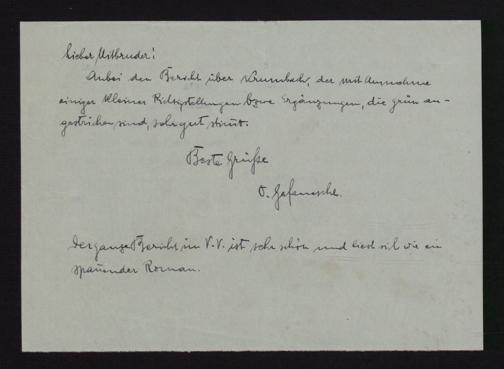 Lieber Mitbruder!
Anbei den Bericht über Krumbach, der mit Ausnahme
einiger kleiner Richtigstellungen bzw. Ergänzungen, die grün an-
gestrichen sind, sehr gut stimmt.
Beste Grüße
O.
Der ganze Bericht im V.V. ist sehr schön und liest sich wie ein
spannender Roman.